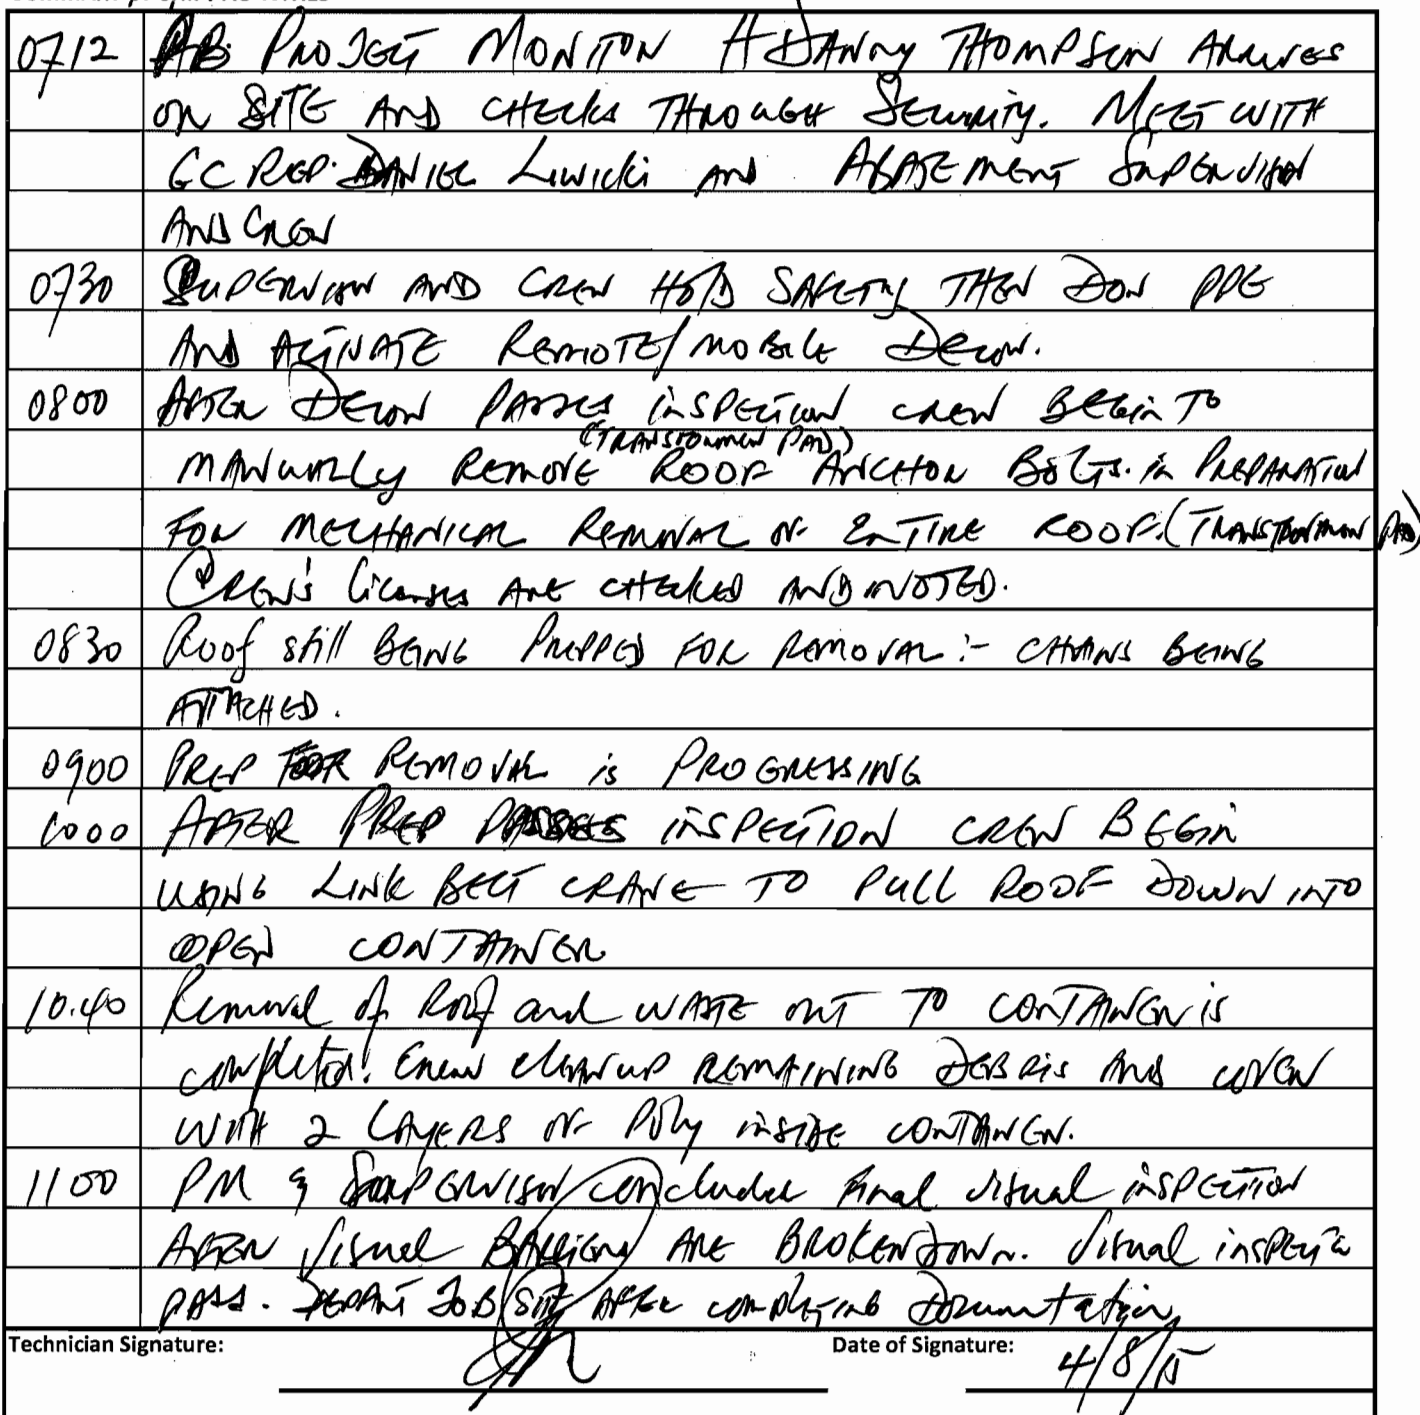 0712 AB PROJECT MONITOR H DANNY THOMPSON ARRIVES
ON SITE AND CHECKS THROUGH SECURITY. MEET WITH
GC REP. DANIEL Liwicki AND ABATEMENT SUPERVISOR
AND CREW
0730 SUPERVISOR AND CREW HOLD SAFETY THEN DON PPE
AND ACTIVATE REMOTE/MOBILE DECON.
0800 AFTER DECON PASSES INSPECTION CREW BEGIN TO
(TRANSFORMER PAD)
MANUALLY REMOVE ROOF ANCHOR BOLTS. in PREPARATION
FOR MECHANICAL REMOVAL OF ENTIRE ROOF. (TRANSFORMER PAD)
CREW'S licenses ARE CHECKED AND NOTED.
0830 Roof still BEING PREPPED FOR REMOVAL :- CHAINS BEING
ATTACHED.
0900 PREP FOR REMOVAL is PROGRESSING
1000 AFTER PREP PASSES INSPECTION CREW BEGIN
USING LINK BELT CRANE TO PULL ROOF DOWN INTO
OPEN CONTAINER
10.40 Removal of Roof and WASTE OUT TO CONTAINER is
completed! Crew cleanup REMAINING DEBRIS AND COVER
WITH 2 LAYERS OF Poly INSIDE CONTAINER.
1100 PM & SUPERVISOR concludes final visual INSPECTION
AFTER Visual BARRIERS ARE BROKEN DOWN. Visual inspectn
PASS. DEPART JOB SITE AFTER COMPLETING Documentation
Technician Signature: Date of Signature: 4/8/15